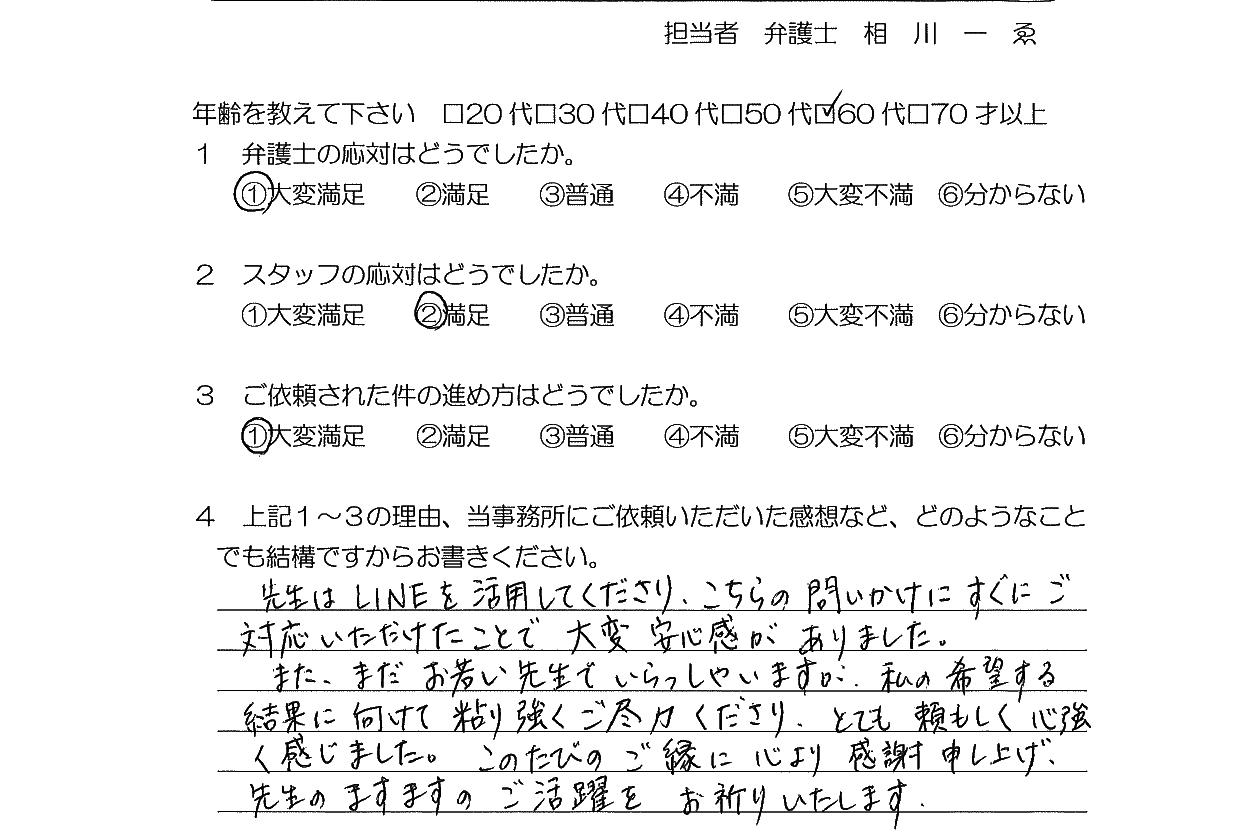 担当者　弁護士　相　川　一　ゑ
年齢を教えて下さい　□20代□30代□40代□50代☑60代□70才以上
１　弁護士の応対はどうでしたか。
①大変満足　②満足　③普通　④不満　⑤大変不満　⑥分からない
２　スタッフの応対はどうでしたか。
①大変満足　②満足　③普通　④不満　⑤大変不満　⑥分からない
３　ご依頼された件の進め方はどうでしたか。
①大変満足　②満足　③普通　④不満　⑤大変不満　⑥分からない
４　上記１～３の理由、当事務所にご依頼いただいた感想など、どのようなこと
でも結構ですからお書きください。
先生はLINEを活用してくださり、こちらの問いかけにすぐにご
対応いただけたことで大変安心感がありました。
また、まだお若い先生でいらっしゃいますが、私の希望する
結果に向けて粘り強くご尽力くださり、とても頼もしく心強
く感じました。このたびのご縁に心より感謝申し上げ、
先生のますますのご活躍をお祈りいたします。